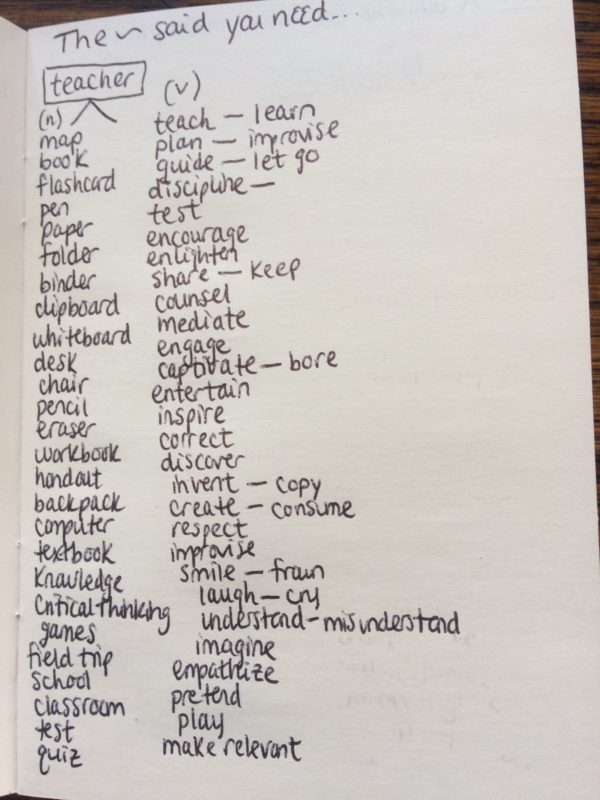 The ~ said you need...
teacher
(n)
map
book
flashcard
pen
paper
folder
binder
clipboard
whiteboard
desk
chair
pencil
eraser
workbook
handout
backpack
computer
textbook
knowledge
critical thinking
games
field trip
school
classroom
test
quiz
(v)
teach — learn
plan — improvise
guide — let go
discipline —
test
encourage
enlighten
share — keep
counsel
mediate
engage
captivate — bore
entertain
inspire
correct
discover
invent — copy
create — consume
respect
improvise
smile — frown
laugh — cry
understand — misunderstand
imagine
empathize
pretend
play
make relevant